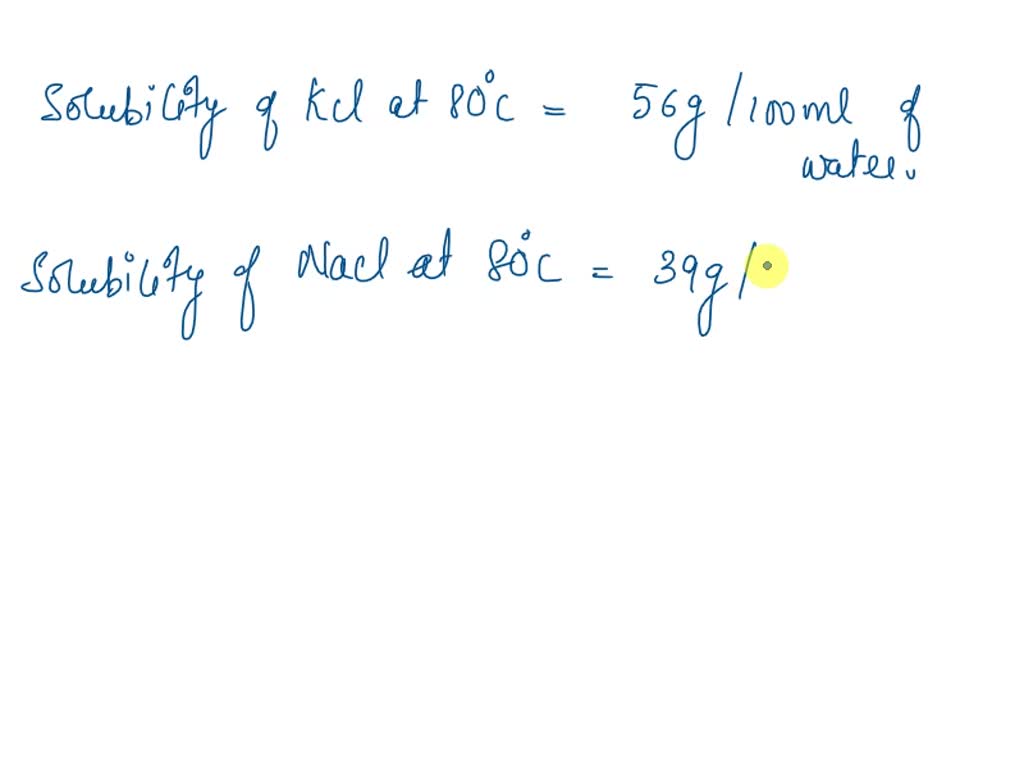 Solubility of Kcl at 80°c = 56g/100ml of
water.
Solubility of Nacl at 80°c = 39g/